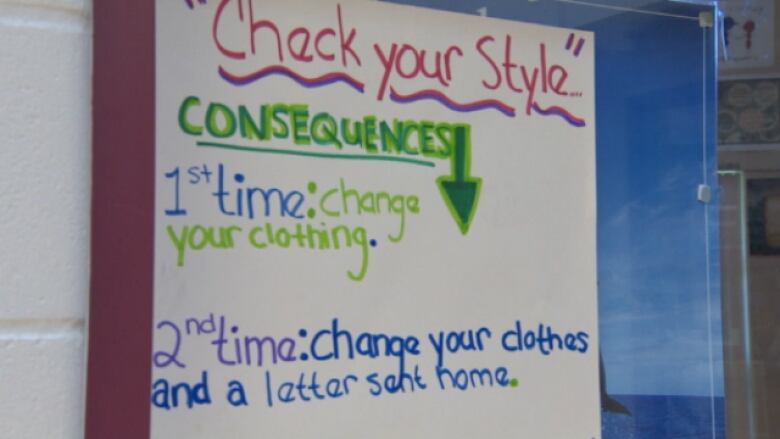 "Check your Style"...
CONSEQUENCES
1st time: change
your clothing.
2nd time: change your clothes
and a letter sent home.